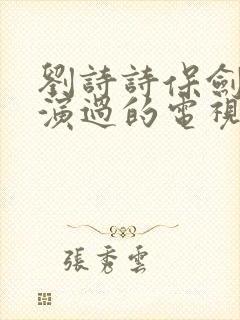 劉詩詩保劍
演過的電視
張秀雲